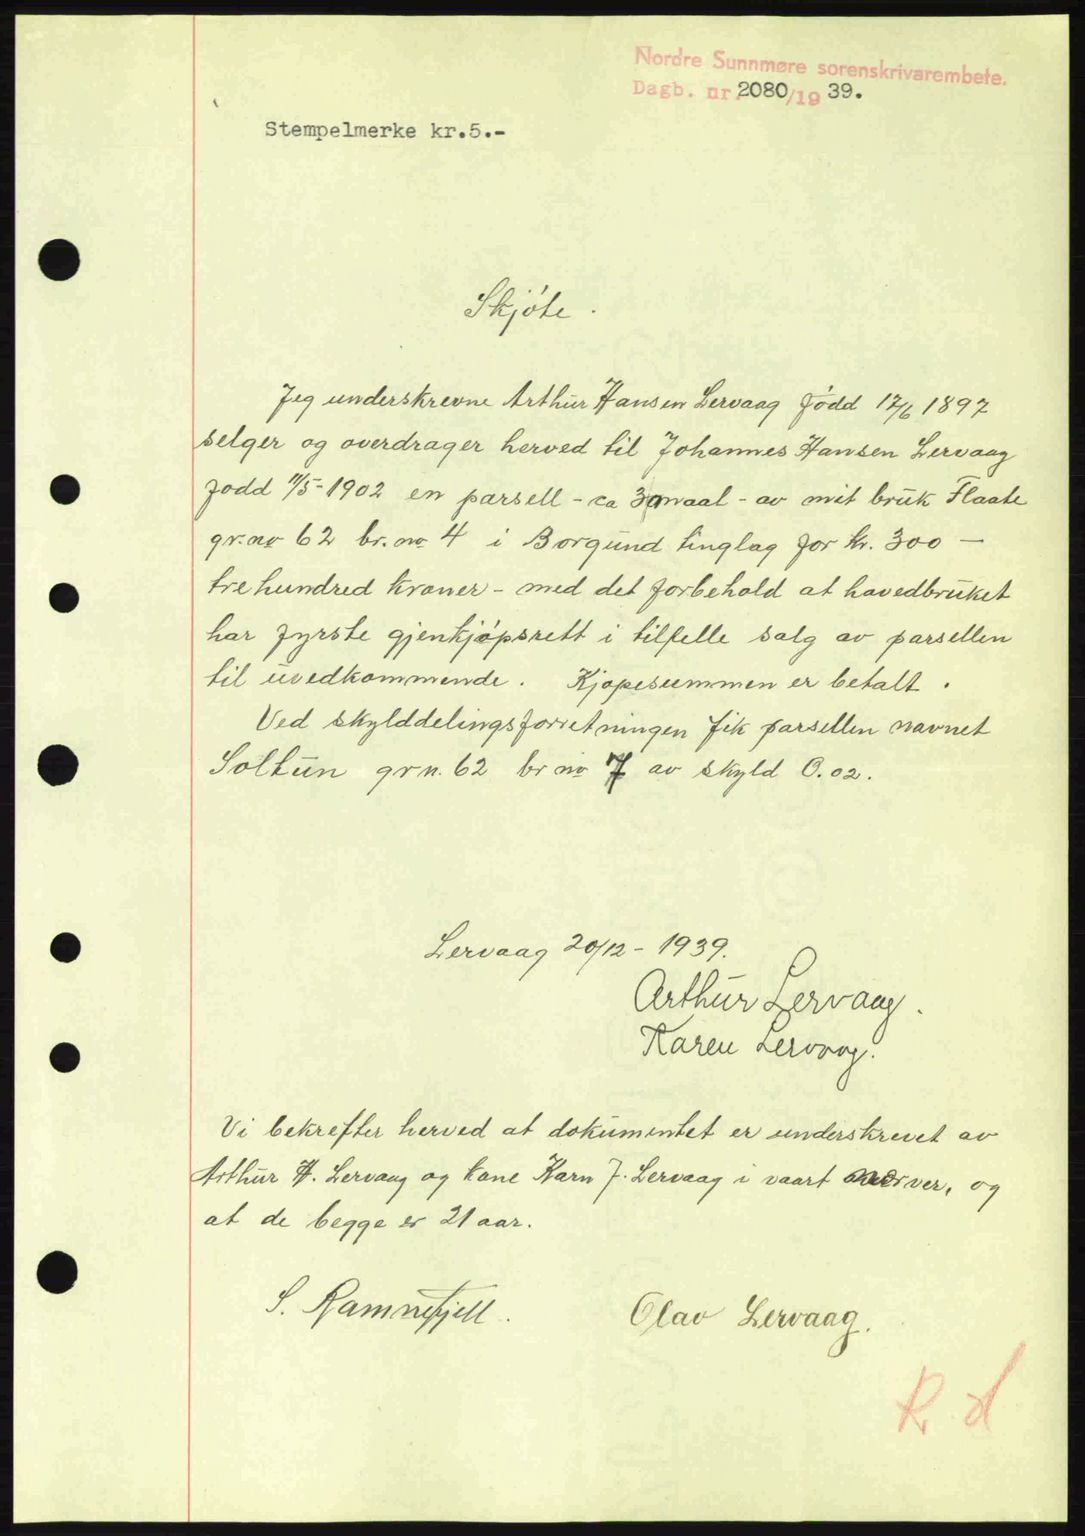 Nordre Sunnmøre sorenskrivarembete.
Dagb. nr. 2080/19 39.
Stempelmerke kr.5.-
Skjóte.
Jeg underskrevne Arthur Hansen Lervaag fódd 17/6 1897
selger og overdrager herved til Johannes Hansen Lervaag
fodd 11/5-1902 en parsell - ca 3 maal - av mit brŭk Flaate
gr.no 62 br.no 4 i Borgŭnd tinglag for kr. 300 —
trehundred kroner - med det forbehold at hovedbrŭket
har fyrste gjenkjópsrett i tilfelle salg av parsellen
til uvedkommende. Kjopesummen er betalt.
Ved skylddelingsforretningen fik parsellen navnet
Soltŭn grn. 62 br no 7 av skyld 0.02.
Lervaag 20/12 - 1939.
Arthŭr Lervaag.
Karen Lervaag.
Vi bekrefter herved at dokŭmentet er underskrevet av
Arthŭr H. Lervaag og kone Karn J. Lervaag i vaart nærver, og
at de begge er 21 aar.
S. Ramnefjell.
Olav Lervaag.
R. d